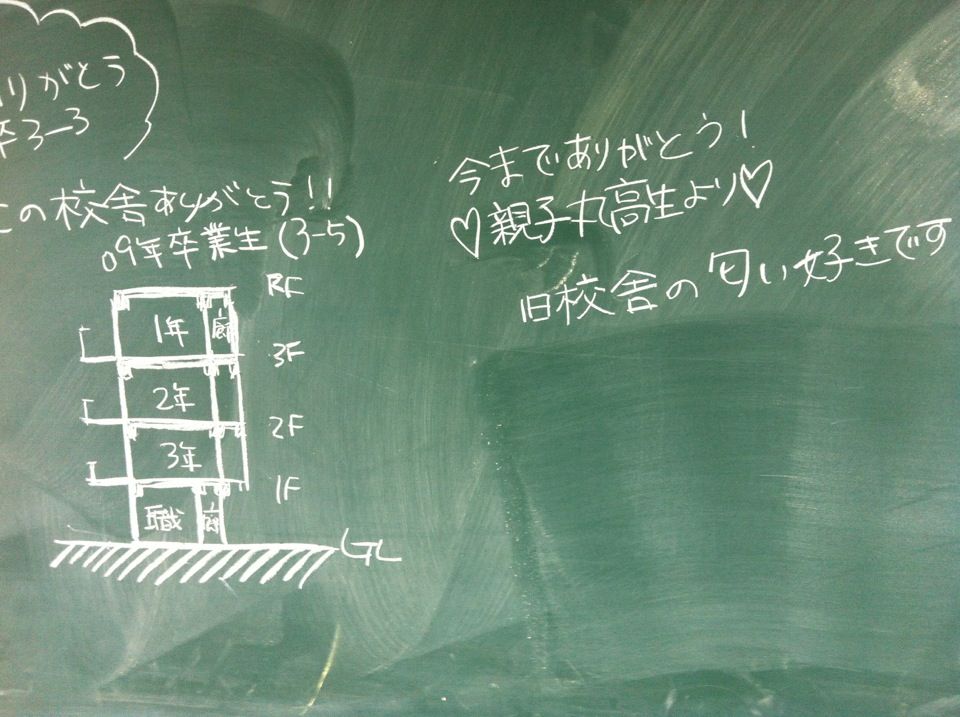 りがとう
卒3-3
この校舎ありがとう!!
09年卒業生(3-5)
RF
1年 廊
3F
2年
2F
3年
1F
職 廊
GL
今までありがとう!
♡親子丸高生より♡
旧校舎の匂い好きです